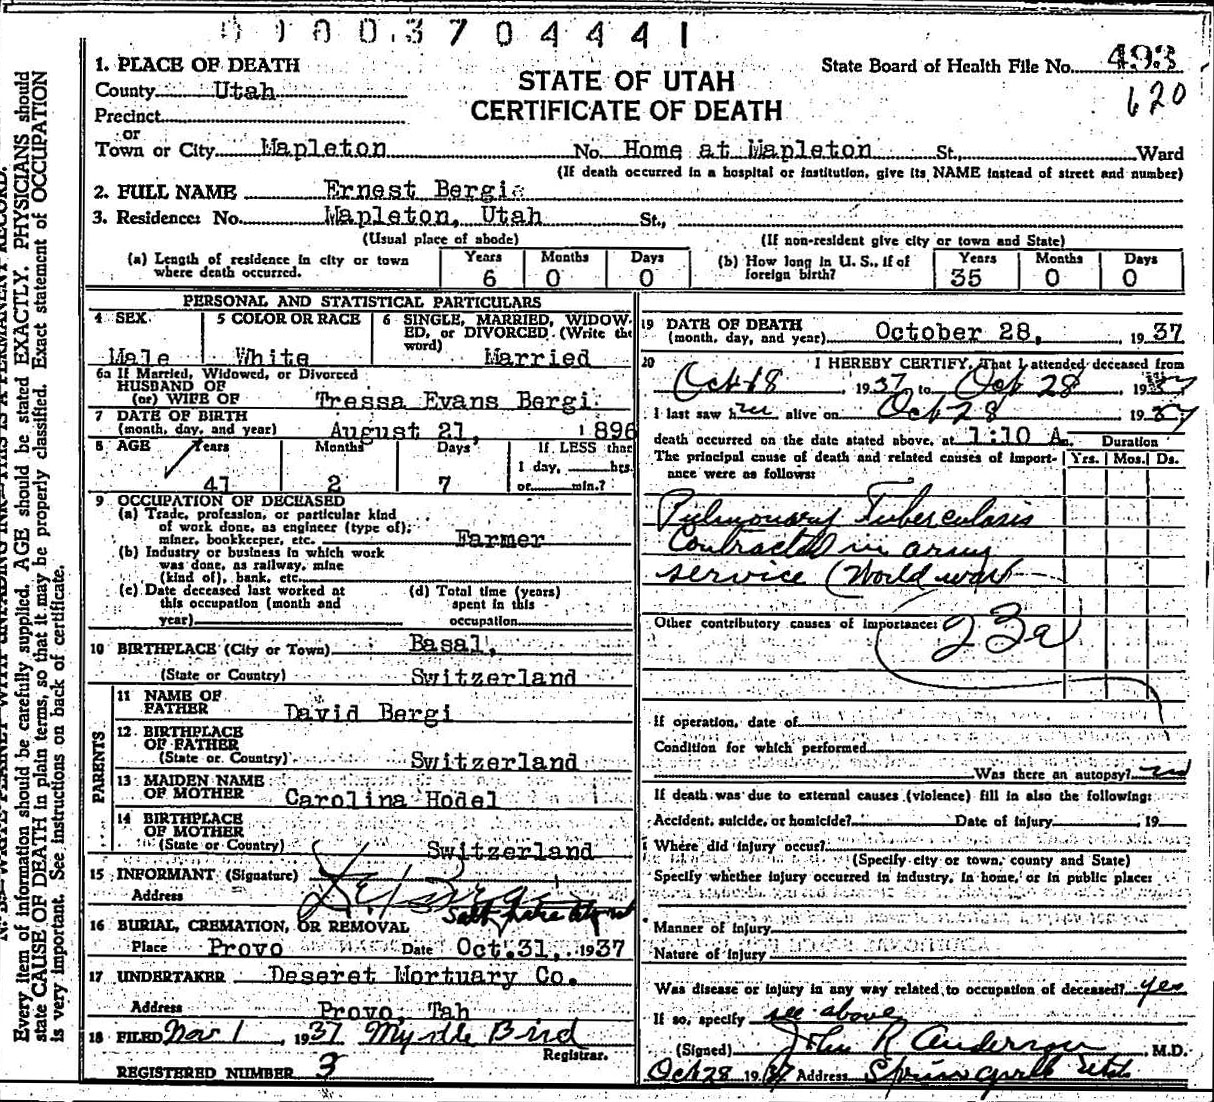 01003704441
1. PLACE OF DEATH
STATE OF UTAH
CERTIFICATE OF DEATH
State Board of Health File No. 493
620
County Utah
Precinct
or
Town or City Mapleton No. Home at Mapleton St., Ward
(If death occurred in a hospital or institution, give its NAME instead of street and number)
2. FULL NAME Ernest Bergi
3. Residence: No. Mapleton, Utah St.,
(Usual place of abode) (If non-resident give city or town and State)
(a) Length of residence in city or town where death occurred. Years 6 Months 0 Days 0
(b) How long in U. S., if of foreign birth? Years 35 Months 0 Days 0
PERSONAL AND STATISTICAL PARTICULARS
4 SEX Male
5 COLOR OR RACE White
6 SINGLE, MARRIED, WIDOWED, or DIVORCED. (Write the word) Married
6a If Married, Widowed, or Divorced
HUSBAND OF
(or) WIFE OF Tressa Evans Bergi
7 DATE OF BIRTH
(month, day, and year) August 21, 1896
8 AGE Years 41 Months 2 Days 7 If LESS than 1 day, hrs. or min.?
9 OCCUPATION OF DECEASED
(a) Trade, profession, or particular kind
of work done, as engineer (type of);
miner, bookkeeper, etc. Farmer
(b) Industry or business in which work
was done, as railway, mine
(kind of), bank, etc.
(c) Date deceased last worked at
this occupation (month and
year)
(d) Total time (years)
spent in this
occupation
10 BIRTHPLACE (City or Town) Basal,
(State or Country) Switzerland
PARENTS
11 NAME OF
FATHER David Bergi
12 BIRTHPLACE
OF FATHER
(State or Country) Switzerland
13 MAIDEN NAME
OF MOTHER Carolina Hodel
14 BIRTHPLACE
OF MOTHER
(State or Country) Switzerland
15 INFORMANT (Signature)
Address Salt Lake City
16 BURIAL, CREMATION, OR REMOVAL
Place Provo Date Oct. 31, 1937
17 UNDERTAKER Deseret Mortuary Co.
Address Provo, Tah
18 FILED Nov 1, 1937 Myrtle Bird
Registrar.
REGISTERED NUMBER 3
19 DATE OF DEATH
(month, day, and year) October 28, 1937
20 I HEREBY CERTIFY, That I attended deceased from
Oct 18 1937 to Oct 28 1937
I last saw him alive on Oct 28 1937
death occurred on the date stated above, at 1:10 A m. Duration
The principal cause of death and related causes of importance were as follows: Yrs. Mos. Ds.
Pulmonary Tuberculosis
Contracted in army
service (World war
Other contributory causes of importance: 23a
If operation, date of
Condition for which performed
Was there an autopsy? no
If death was due to external causes (violence) fill in also the following:
Accident, suicide, or homicide? Date of injury, 19
Where did injury occur?
(Specify city or town, county and State)
Specify whether injury occurred in industry, in home, or in public place:
Manner of Injury
Nature of Injury
Was disease or injury in any way related to occupation of deceased? yes
If so, specify see above
(Signed) John R Anderson, M.D.
Oct 28 1937 Address Springville Utah
N. B.—WRITE PLAINLY WITH UNFADING INK—THIS IS A PERMANENT RECORD.
Every item of information should be carefully supplied. AGE should be stated EXACTLY. PHYSICIANS should
state CAUSE OF DEATH in plain terms, so that it may be properly classified. Exact statement of OCCUPATION
is very important. See instructions on back of certificate.